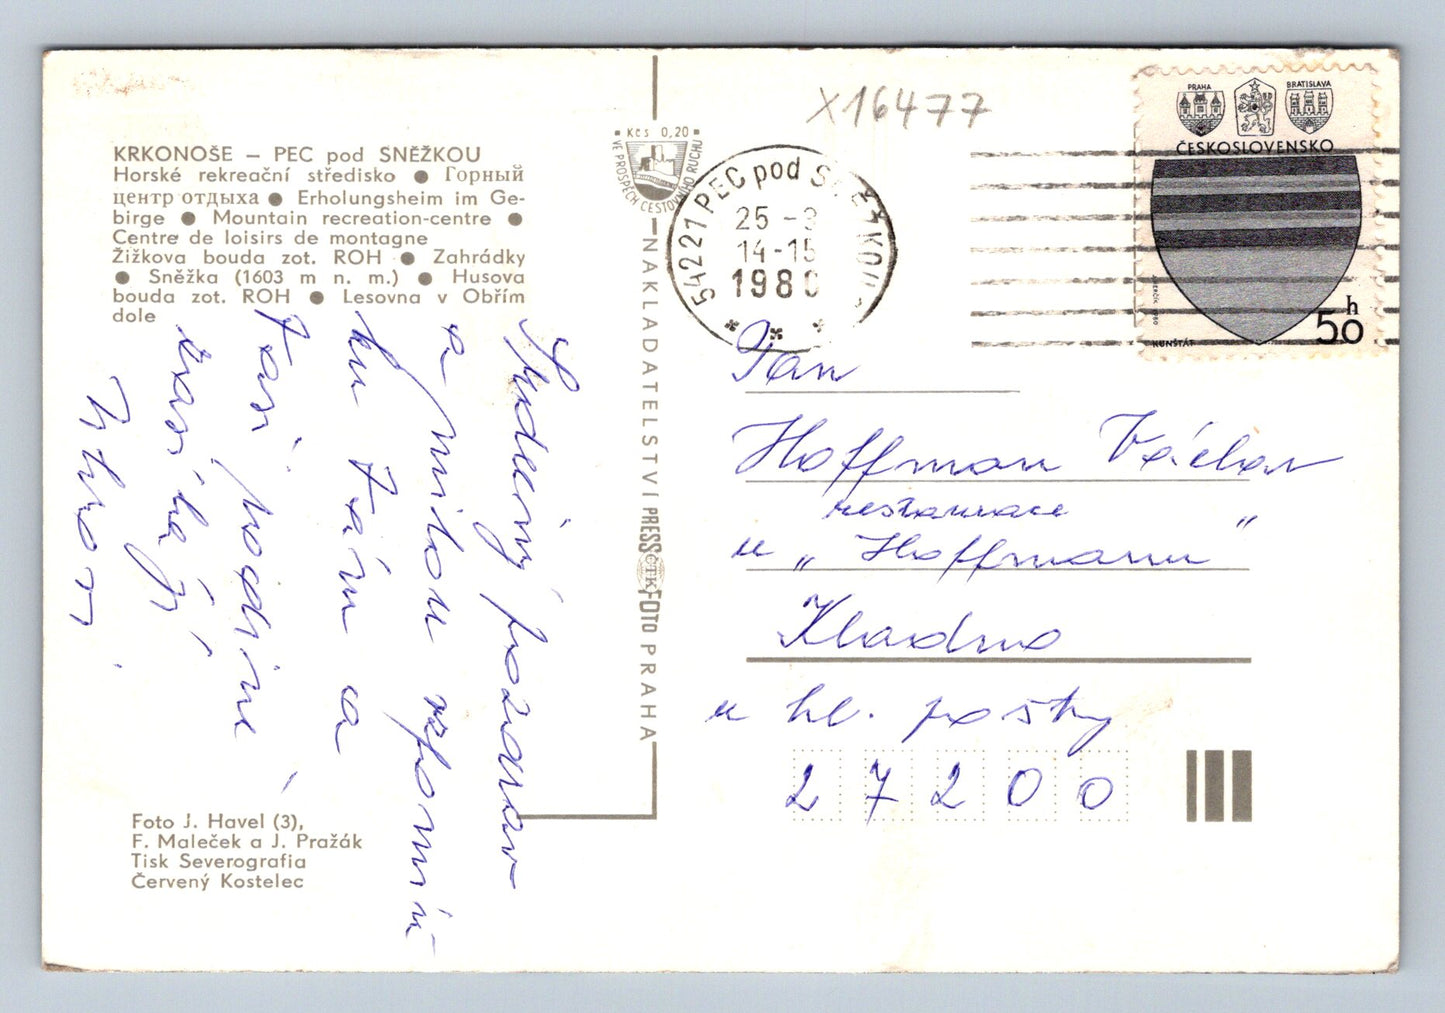 X16477
KRKONOŠE – PEC pod SNĚŽKOU
Horské rekreační středisko ● Горный
центр отдыха ● Erholungsheim im Ge-
birge ● Mountain recreation-centre ●
Centre de loisirs de montagne
Žižkova bouda zot. ROH ● Zahrádky
● Sněžka (1603 m n. m.) ● Husova
bouda zot. ROH ● Lesovna v Obřím
dole
Srdečný pozdrav
a milou vzpomín
ku Vám a
Vaší rodině
zasílají
Foto J. Havel (3),
F. Maleček a J. Pražák
Tisk Severografia
Červený Kostelec
Kčs 0,20
VE PROSPĚCH CESTOVNÍHO RUCHU
NAKLADATELSTVÍ PRESSFOTO PRAHA
ČTK
54221 PEC pod SNĚŽKOU
25 -
14-15
1980
PRAHA
BRATISLAVA
ČESKOSLOVENSKO
KUNŠTÁT
50 h
Pan
Hoffman Václav
restaurace
u „Hoffmanu“
Kladno
u hl. pošty
27200